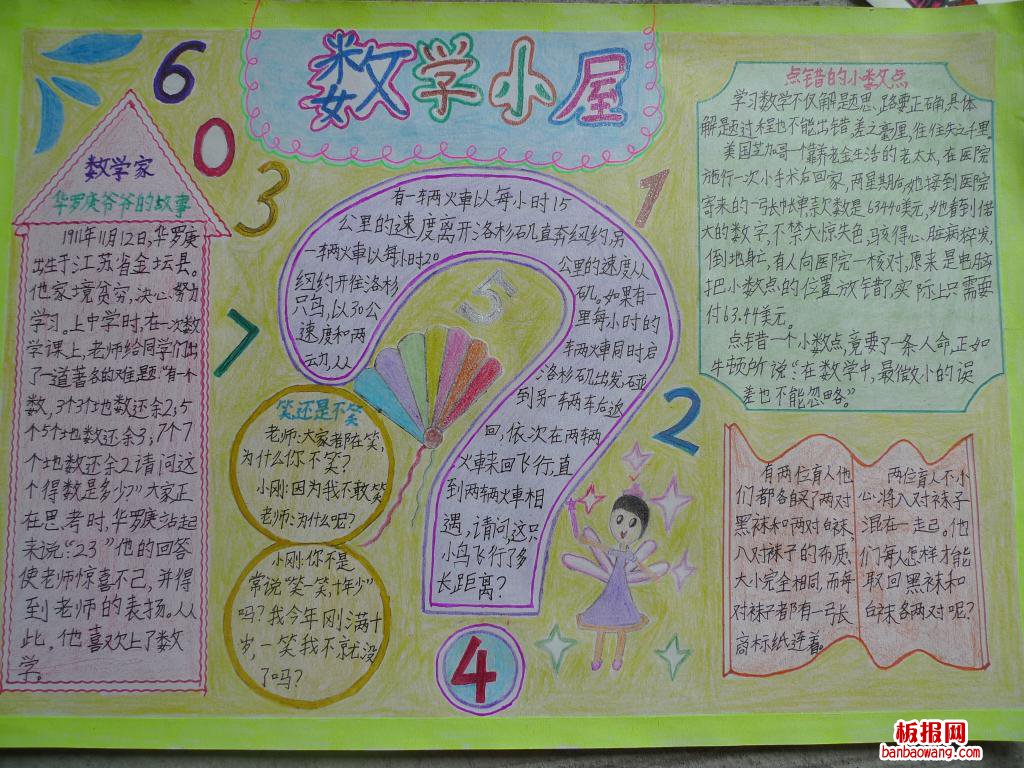 数学小屋
6
0
3
7
1
5
2
4
数学家
华罗庚爷爷的故事
1911年11月12日,华罗庚
出生于江苏省金坛县。
他家境贫穷,决心努力
学习。上中学时,在一次数
学课上,老师给同学们出
了一道著名的难题:"有一个
数,3个3个地数还余2;5
个5个地数还余3;7个7
个地数还余2,请问这
个得数是多少?"大家正
在思考时,华罗庚站起
来说:"23"他的回答
使老师惊喜不已,并得
到老师的表扬。从
此,他喜欢上了数
学。
有一辆火車以每小时15
公里的速度离开洛杉矶直奔纽约,另
一辆火車以每小时20
公里的速度从
纽约开往洛杉
矶。如果有一
只鸟,以30公
里每小时的
速度和两
车辆火車同时启
动,从
洛杉矶出发,碰
到另一辆车后返
回,依次在两辆
火車来回飞行,直
到两辆火車相
遇,请问,这只
小鸟飞行了多
长距离?
笑还是不笑
老师:大家都在笑,
为什么你不笑?
小刚:因为我不敢笑
老师:为什么呢?
小刚:你不是
常说"笑一笑,十年少"
吗?我今年刚满十
岁,一笑我不就没
了吗?
点错的小数点
学习数学不仅解题思,路要正确,具体
解题过程也不能出错,差之毫厘,往往失之千里.
美国芝加哥一个靠养老金生活的老太太,在医院
施行一次小手术后回家,两星期后,她接到医院
寄来的一张帐单,款数是63440美元,她看到偌
大的数字,不禁大惊失色,骇得心脏病猝发,
倒地身亡,有人向医院一核对,原来是电脑
把小数点的位置放错了,实际上只需要
付63.44美元。
点错一个小数点,竟要了一条人命,正如
牛顿所说:"在数学中,最微小的误
差也不能忽略。"
有两位盲人,他
们都各自买了两对
黑袜和两对白袜,
八对袜子的布质、
大小完全相同,而每
对袜子都有一张
商标纸连着。
两位盲人不小
心将八对袜子
混在一起。他
们每人怎样才能
取回黑袜和
白袜各两对呢?
板报网
banbaowang.com